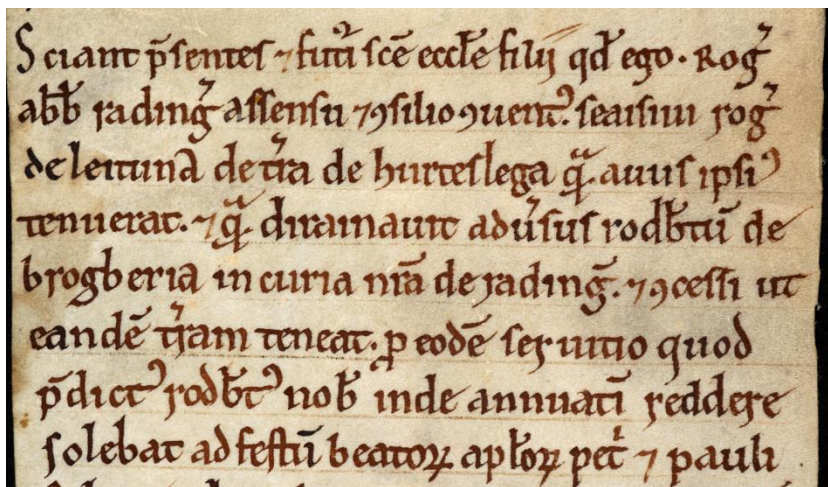 Sciant p̄sentes ⁊ futuͥ sc̄e eccl̄e filii qd̄ ego. Rog᷒
abb̄ rading᷒ assensu ⁊ ꝯsilio ꝯuent᷒. seaisiui rog᷒
de leituna de tͥra de hurteslega qͣ. auus ipsi᷒
tenuerat. ⁊ qͣ. diramauit adùsus rodbt̄ū de
brogberia in curia nr̄a de rading᷒. ⁊ ꝯcessi ut
eandē tͥram teneat. ꝓ eodē seruitio quod
p̄dict᷒ rodbt̄᷒ nob̄ inde annuatī reddere
solebat ad festū beatoꝝ apl̄oꝝ pet̍ ⁊ pauli